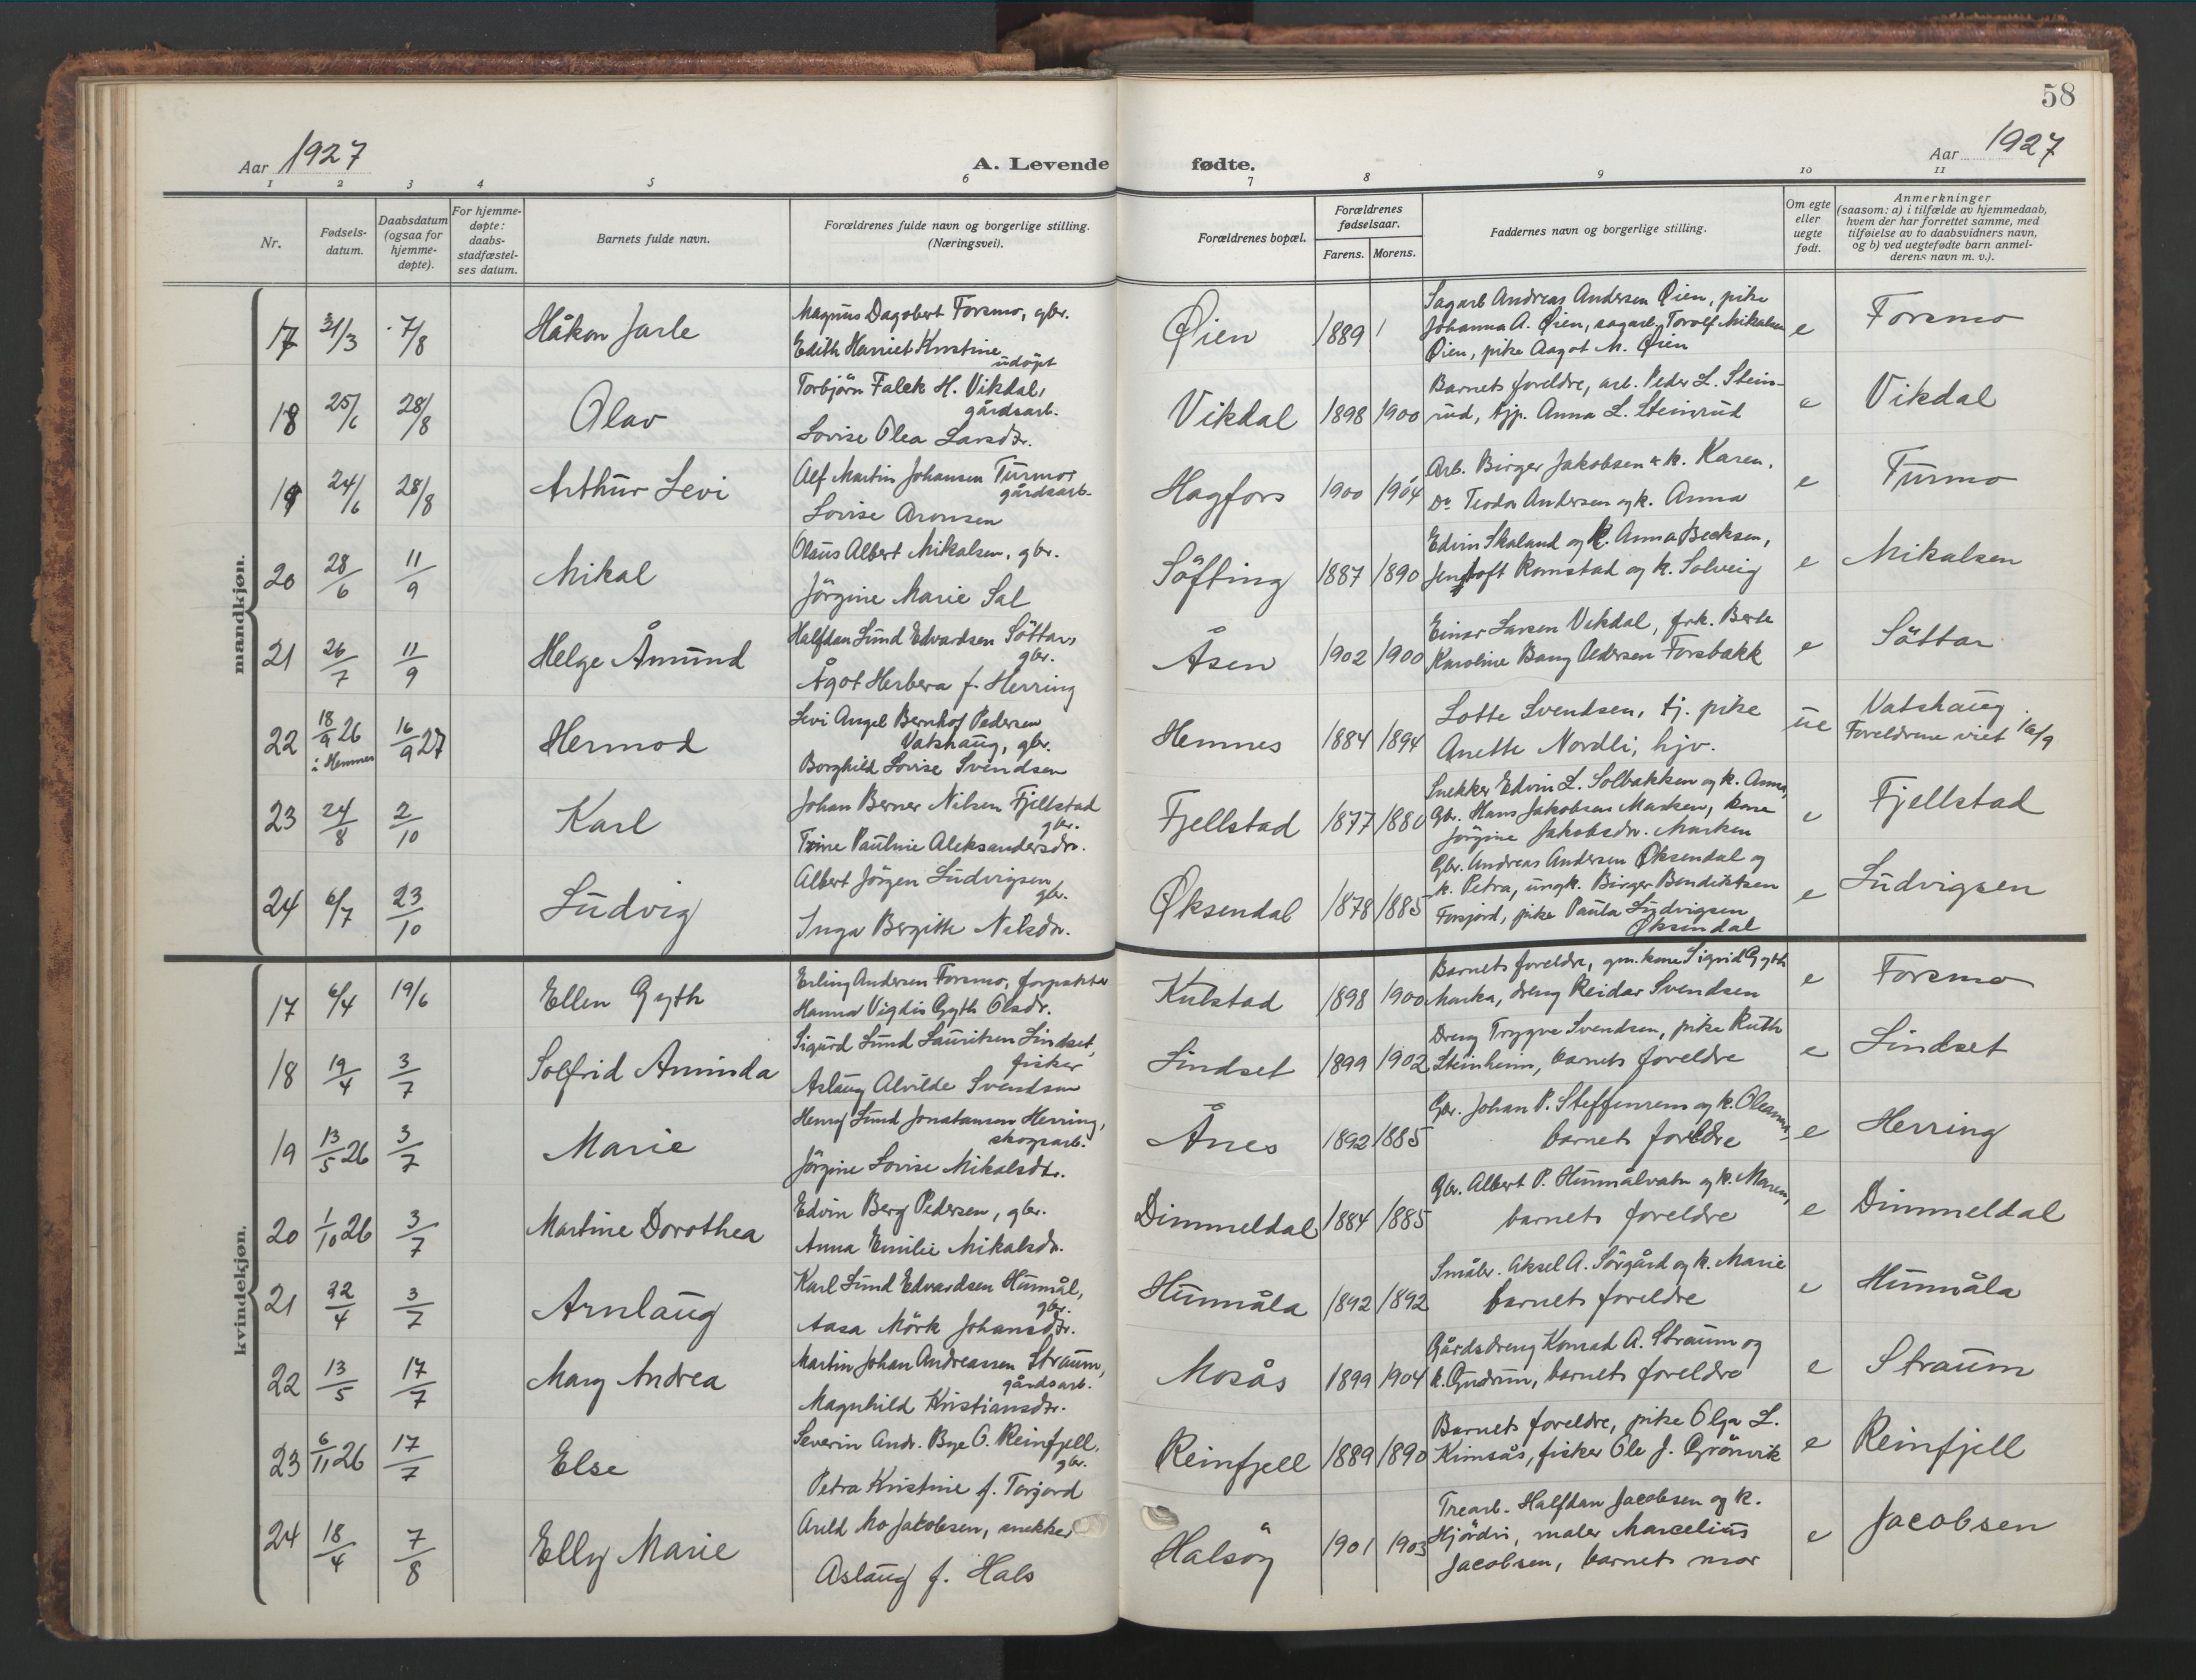 58
Aar 1927
A. Levende fødte.
Aar 1927
1 2 3 4 5 6 7 8 9 10 11
Nr.
Fødsels-
datum.
Daabsdatum
(ogsaa for
hjemme-
døpte).
For hjemme-
døpte:
daabs-
stadfæstel-
ses datum.
Barnets fulde navn.
Forældrenes fulde navn og borgerlige stilling.
(Næringsvei).
Forældrenes bopæl.
Forældrenes
fødselsaar.
Farens. Morens.
Faddernes navn og borgerlige stilling.
Om egte
eller
uegte
født.
Anmerkninger
(saasom: a) i tilfælde av hjemmedaab,
hvem der har forrettet samme, med
tilføielse av to daabsvidners navn,
og b) ved uegtefødte barn anmel-
derens navn m. v.).
mandkjøn.
17 31/3 7/8 Håkon Jarle
Magnus Dagobert Forsmo, gbr.
Edith Harriet Kristine
udöpt
Øien 1889
Sagarb Andreas Andersen Øien, pike
Johanna A. Øien, sagarb. Torolf Mikalsen
Øien, pike Aagot M. Øien
e Forsmo
18 25/6 28/8 Olav
Torbjörn Falck H. Vikdal,
gårdsarb.
Lovise Olea Larsdtr.
Vikdal 1898 1900
Barnets foreldre, arb. Peder L. Stein-
rud, tjp. Anna L. Steinrud
e Vikdal
19 24/6 28/8 Arthur Levi
Alf Martin Johansen Turmo
gårdsarb.
Lovise Aronsen
Hagfors 1900 1904
Arb. Birger Jakobsen & k. Karen.
Do Teodor Andersen og k. Anna
e Turmo
20 28/6 11/9 Mikal
Olaus Albert Mikalsen, gbr.
Jörgine Marie Sal
Söfting 1887 1890
Edvin Skaland og k. Anna Becksen,
Jentoft Ramstad og k. Solveig
e Mikalsen
21 26/7 11/9 Helge Åmund
Halfdan Lund Edvardsen Söttar,
gbr.
Ågot Herbera f. Herring
Åsen 1902 1900
Einar Larsen Vikdal, frk. Berte
Karoline Bang Pedersen Forsbakk
e Söttar
22 18/9 26 i Hemnes 16/9 27 Hermod
Levi Angel Bernhof Pedersen
Vatshaug, gbr.
Borghild Lovise Svendsen
Hemnes 1884 1894
Lotte Svendsen, tj. pike
Anette Nordli, hjv.
ue Vatshaug.
Foreldrene viet 16/9
23 24/8 2/10 Karl
Johan Berner Nilsen Fjellstad
gbr.
Trine Pauline Aleksandersdtr.
Fjellstad 1877 1880
Snekker Edvin L. Solbakken og k. Anna,
Gbr. Hans Jakobsen Marken, kone
Jörgine Jakobsdtr. Marken
e Fjellstad
24 6/7 23/10 Ludvig
Albert Jörgen Ludvigsen
gbr.
Inga Bergitte Nilsdtr.
Øksendal 1878 1885
Gbr. Andreas Andersen Øksendal og
k. Petra, ungk. Birger Bendiktsen
Forsjord, pike Paula Ludvigsen
Øksendal
e Ludvigsen
kvindekjøn.
17 6/4 19/6 Ellen Gyth
Erling Andersen Forsmo, forpakter
Hanna Vigdis Gyth Olsdtr.
Kulstad 1898 1900
Barnets foreldre, gm. kone Sigrid Gyth
Marka, dreng Reidar Svendsen
e Forsmo
18 19/4 3/7 Solfrid Aminda
Sigurd Lund Lauritsen Lindset,
fisker
Aslaug Alvilde Svendsen
Lindset 1899 1902
Dreng Trygve Svendsen, pike Ruth
Steinheim, barnets foreldre
e Lindset
19 13/5 26 3/7 Marie
Henry Lund Jonatansen Herring,
skogsarb.
Jörgine Lovise Mikalsdtr.
Ånes 1892 1885
Gbr. Johan P. Steffensen og k. Oleanna,
barnets foreldre
e Herring
20 1/10 26 3/7 Martine Dorothea
Edvin Berg Pedersen, gbr.
Anna Emilie Mikalsdtr.
Dimmeldal 1884 1885
Gbr. Albert P. Hunnålvatn og k. Maren,
barnets foreldre
e Dimmeldal
21 22/4 3/7 Arnlaug
Karl Lund Edvardsen Hunnål,
gbr.
Aasa Mörk Johansdtr.
Hunnåla 1892 1892
Småbr. Aksel A. Sörgård og k. Marie
barnets foreldre
e Hunnåla
22 13/5 17/7 Mary Andrea
Martin Johan Andreassen Straum,
gårdsarb.
Magnhild Kristiansdtr.
Mosås 1899 1904
Gårdsdreng Konrad A. Straum og
k. Gudrun, barnets foreldre
e Straum
23 6/11 26 17/7 Else
Severin Andr. Bye O. Reinfjell,
gbr.
Petra Kristine f. Torjord
Reinfjell 1889 1890
Barnets foreldre, pike Olga L.
Kimsås, fisker Ole J. Grönvik
e Reinfjell
24 18/4 7/8 Elly Marie
Arild Mo Jakobsen, snekker
Aslaug f. Hals
Halsöy 1901 1903
Trearb. Halfdan Jacobsen og k.
Hjördis, maler Marcelius
Jacobsen, barnets mor
e Jacobsen